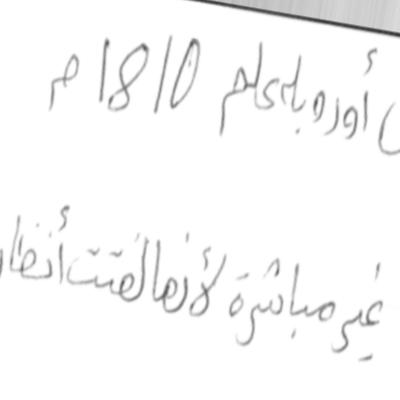 أوروبا، علم 1810 م
غير مباشرة لأنها لفتت أنظار